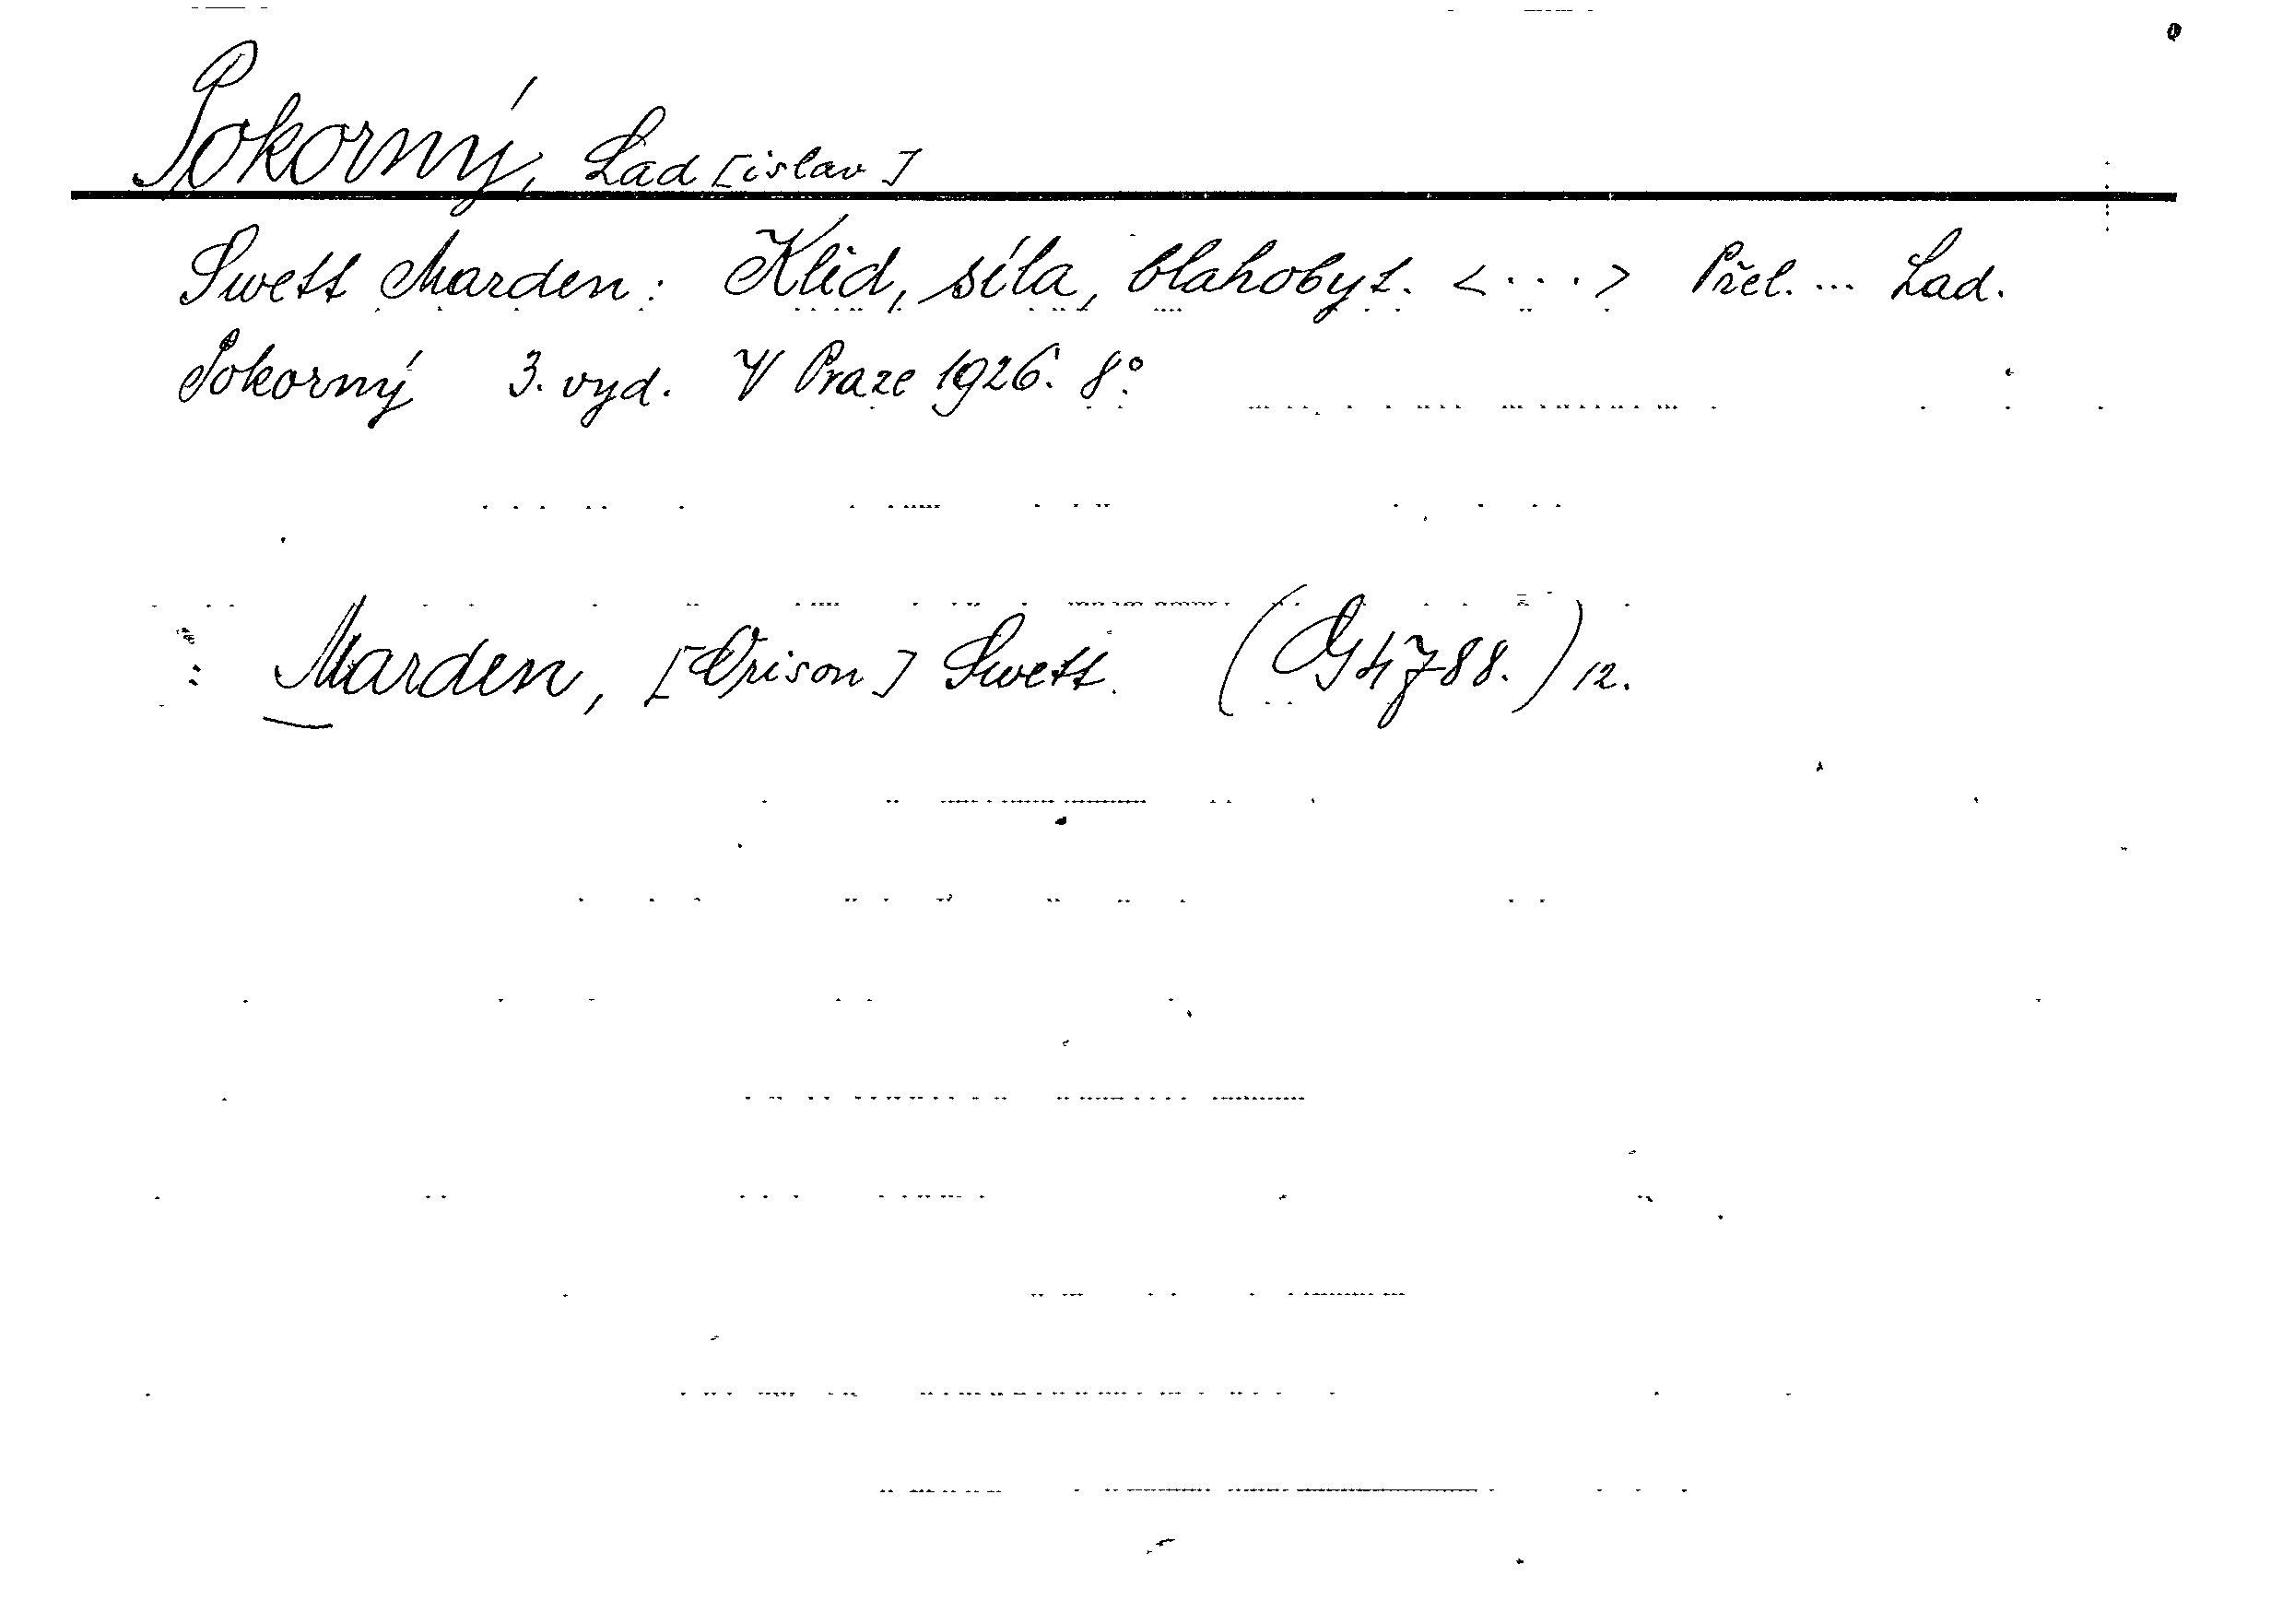 Pokorný, Lad[islav]
Swett Marden: Klid, síla, blahobyt. <...> Přel. ... Lad.
Pokorný 3. vyd. V Praze 1926. 8°.
: Marden, [Orison] Swett. (G 4788.) 12.